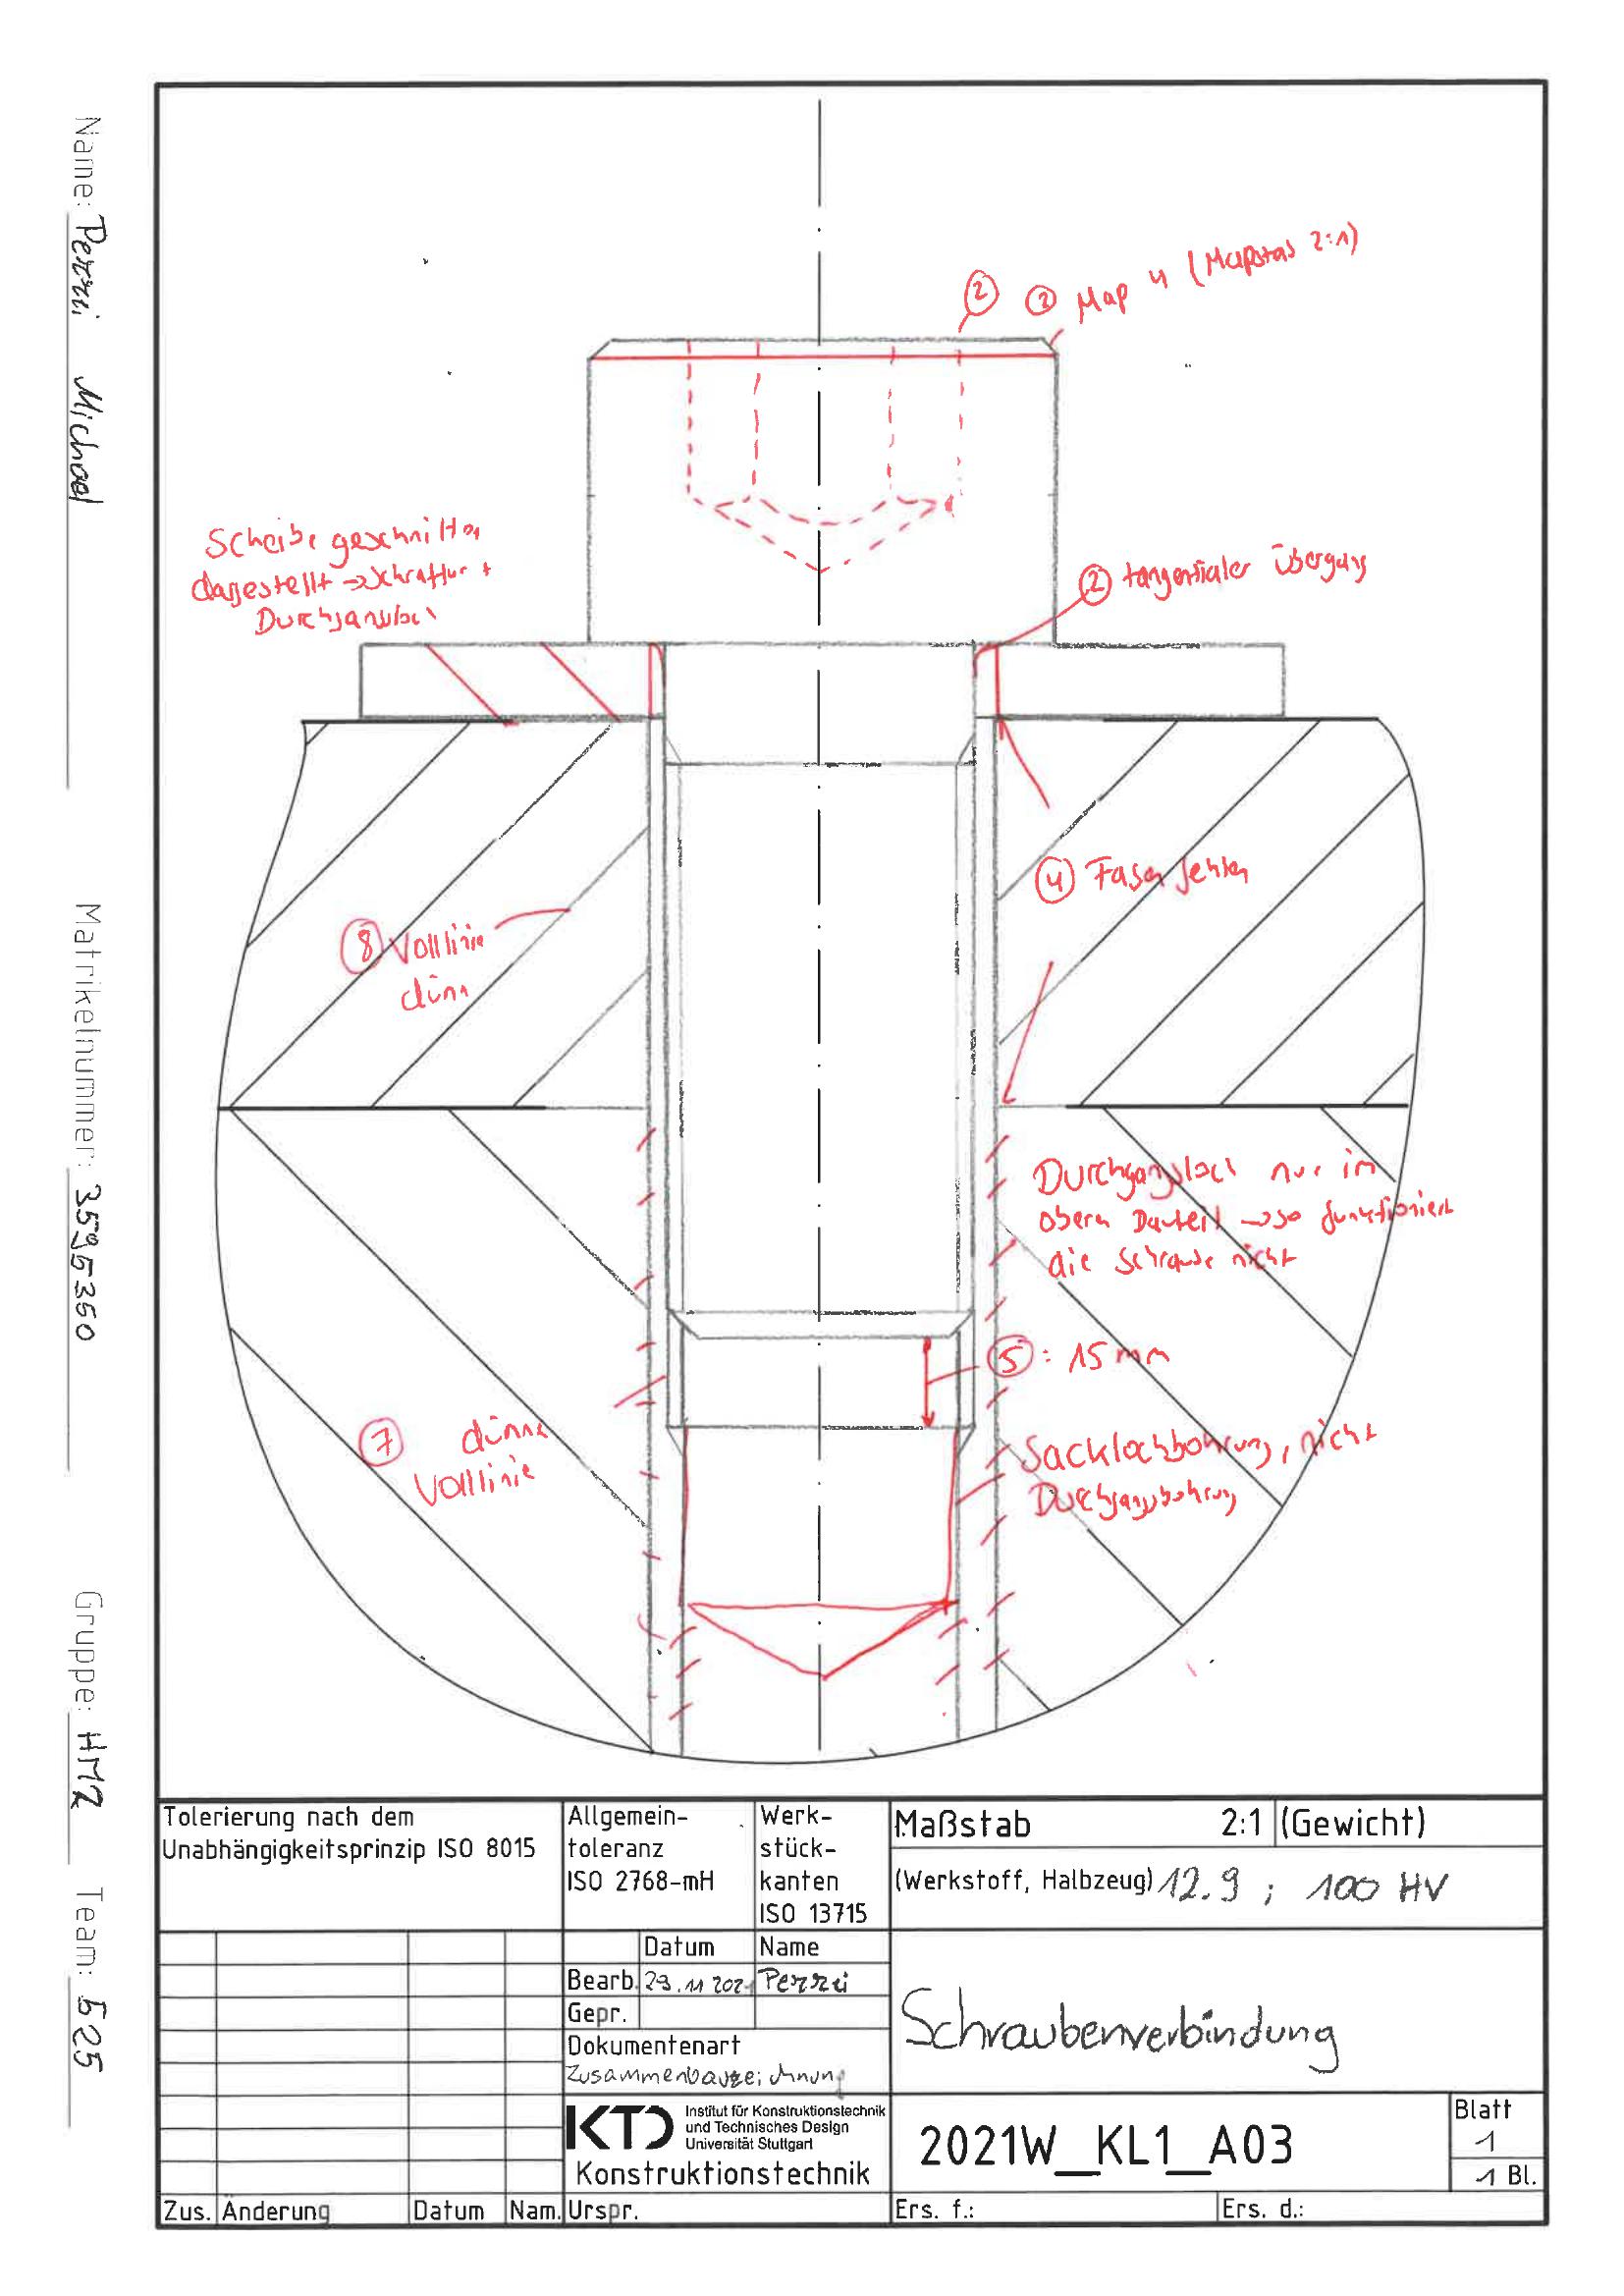 Name: Perri Michael
Matrikelnummer: 3595350
Gruppe: HM2
Team: 525
② ② Maß 4 (Maßstab 2:1)
Scheibe geschnitten
dargestellt → Schraffur +
② tangentialer Übergang
④ Fasen fehlen
⑧ Vollinie
dünn
Durchgangsloch nur im
obern Bauteil → so funktioniert
die Schraube nicht
⑤: 15 mm
⑦ dünne
Vollinie
Sacklochbohrung, nicht
Durchgangsbohrung
Tolerierung nach dem
Unabhängigkeitsprinzip ISO 8015
Allgemein-
toleranz
ISO 2768-mH
Werk-
stück-
kanten
ISO 13715
Maßstab 2:1 (Gewicht)
(Werkstoff, Halbzeug) 12.9 ; 100 HV
Datum Name
Bearb. 29.11 2021 Perri
Gepr.
Dokumentenart
Zusammenbauzeichnung
Schraubenverbindung
KTD Institut für Konstruktionstechnik
und Technisches Design
Universität Stuttgart
Konstruktionstechnik
2021W_KL1_A03
Blatt
1
1 Bl.
Zus. Änderung Datum Nam. Urspr. Ers. f.: Ers. d.: